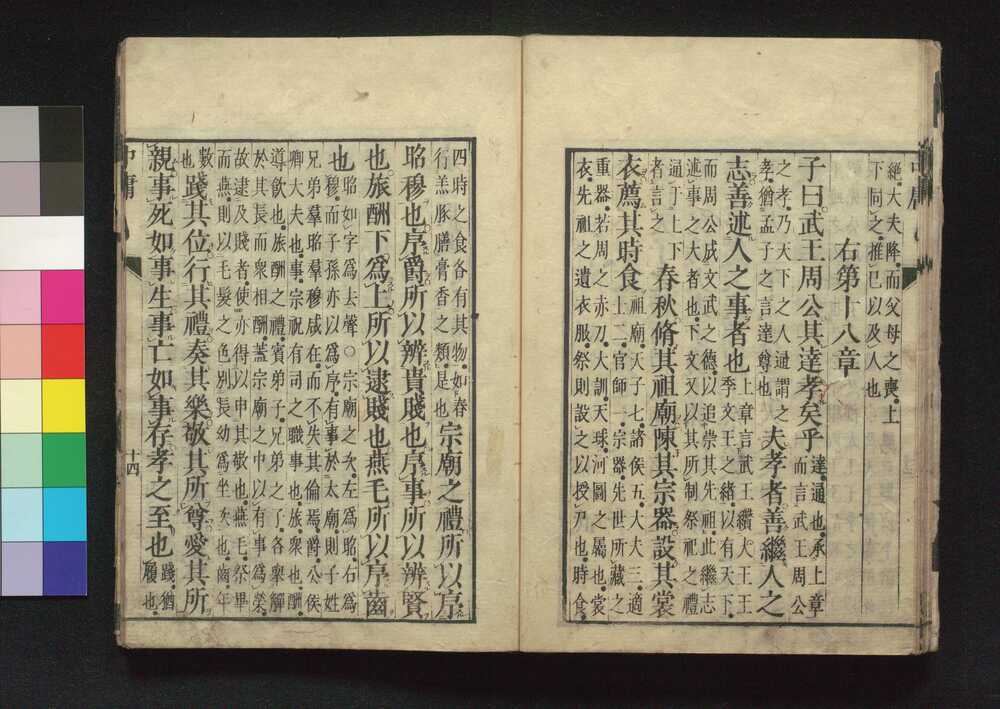 絶大夫降而父母之喪上
下同之推已以及人也
右第十八章
子曰武王周公其達孝矣乎
達通也承上章
而言武王周公
之孝乃天下之人通謂之
孝猶孟子之言達尊也
夫孝者善繼人之
志善述人之事者也
上章言武王纘大王王
季文王之緒以有天下
而周公成文武之德以追崇其先祖此繼志
述事之大者也下文又以其所制祭祀之禮
通于上下
者言之
春秋脩其祖廟陳其宗器設其裳
衣薦其時食
祖廟天子七諸侯五大夫三適
士二官師一宗器先世所藏之
重器若周之赤刀大訓天球河圖之屬也裳
衣先祖之遺衣服祭則設之以授尸也時食
四時之食各有其物如春
行羔豚膳膏香之類是也
宗廟之禮所以序
昭穆也序爵所以辨貴賤也序事所以辨賢
也旅酬下爲上所以逮賤也燕毛所以序齒
也
昭如字爲去聲○宗廟之次左爲昭右爲
穆而子孫亦以爲序有事於太廟則子姓
兄弟羣昭羣穆咸在而不失其倫焉爵公侯
卿大夫也事宗祝有司之職事也旅衆也酬
導飲也旅酬之禮賓弟子兄弟之子各舉觶
於其長而衆相酬蓋宗廟之中以有事爲榮
故逮及賤者使亦得以申其敬也燕毛祭畢
而燕則以毛髮之色別長幼爲坐次也齒年
數
也
踐其位行其禮奏其樂敬其所尊愛其所
親事死如事生事亡如事存孝之至也
踐猶
履也
中庸
十四